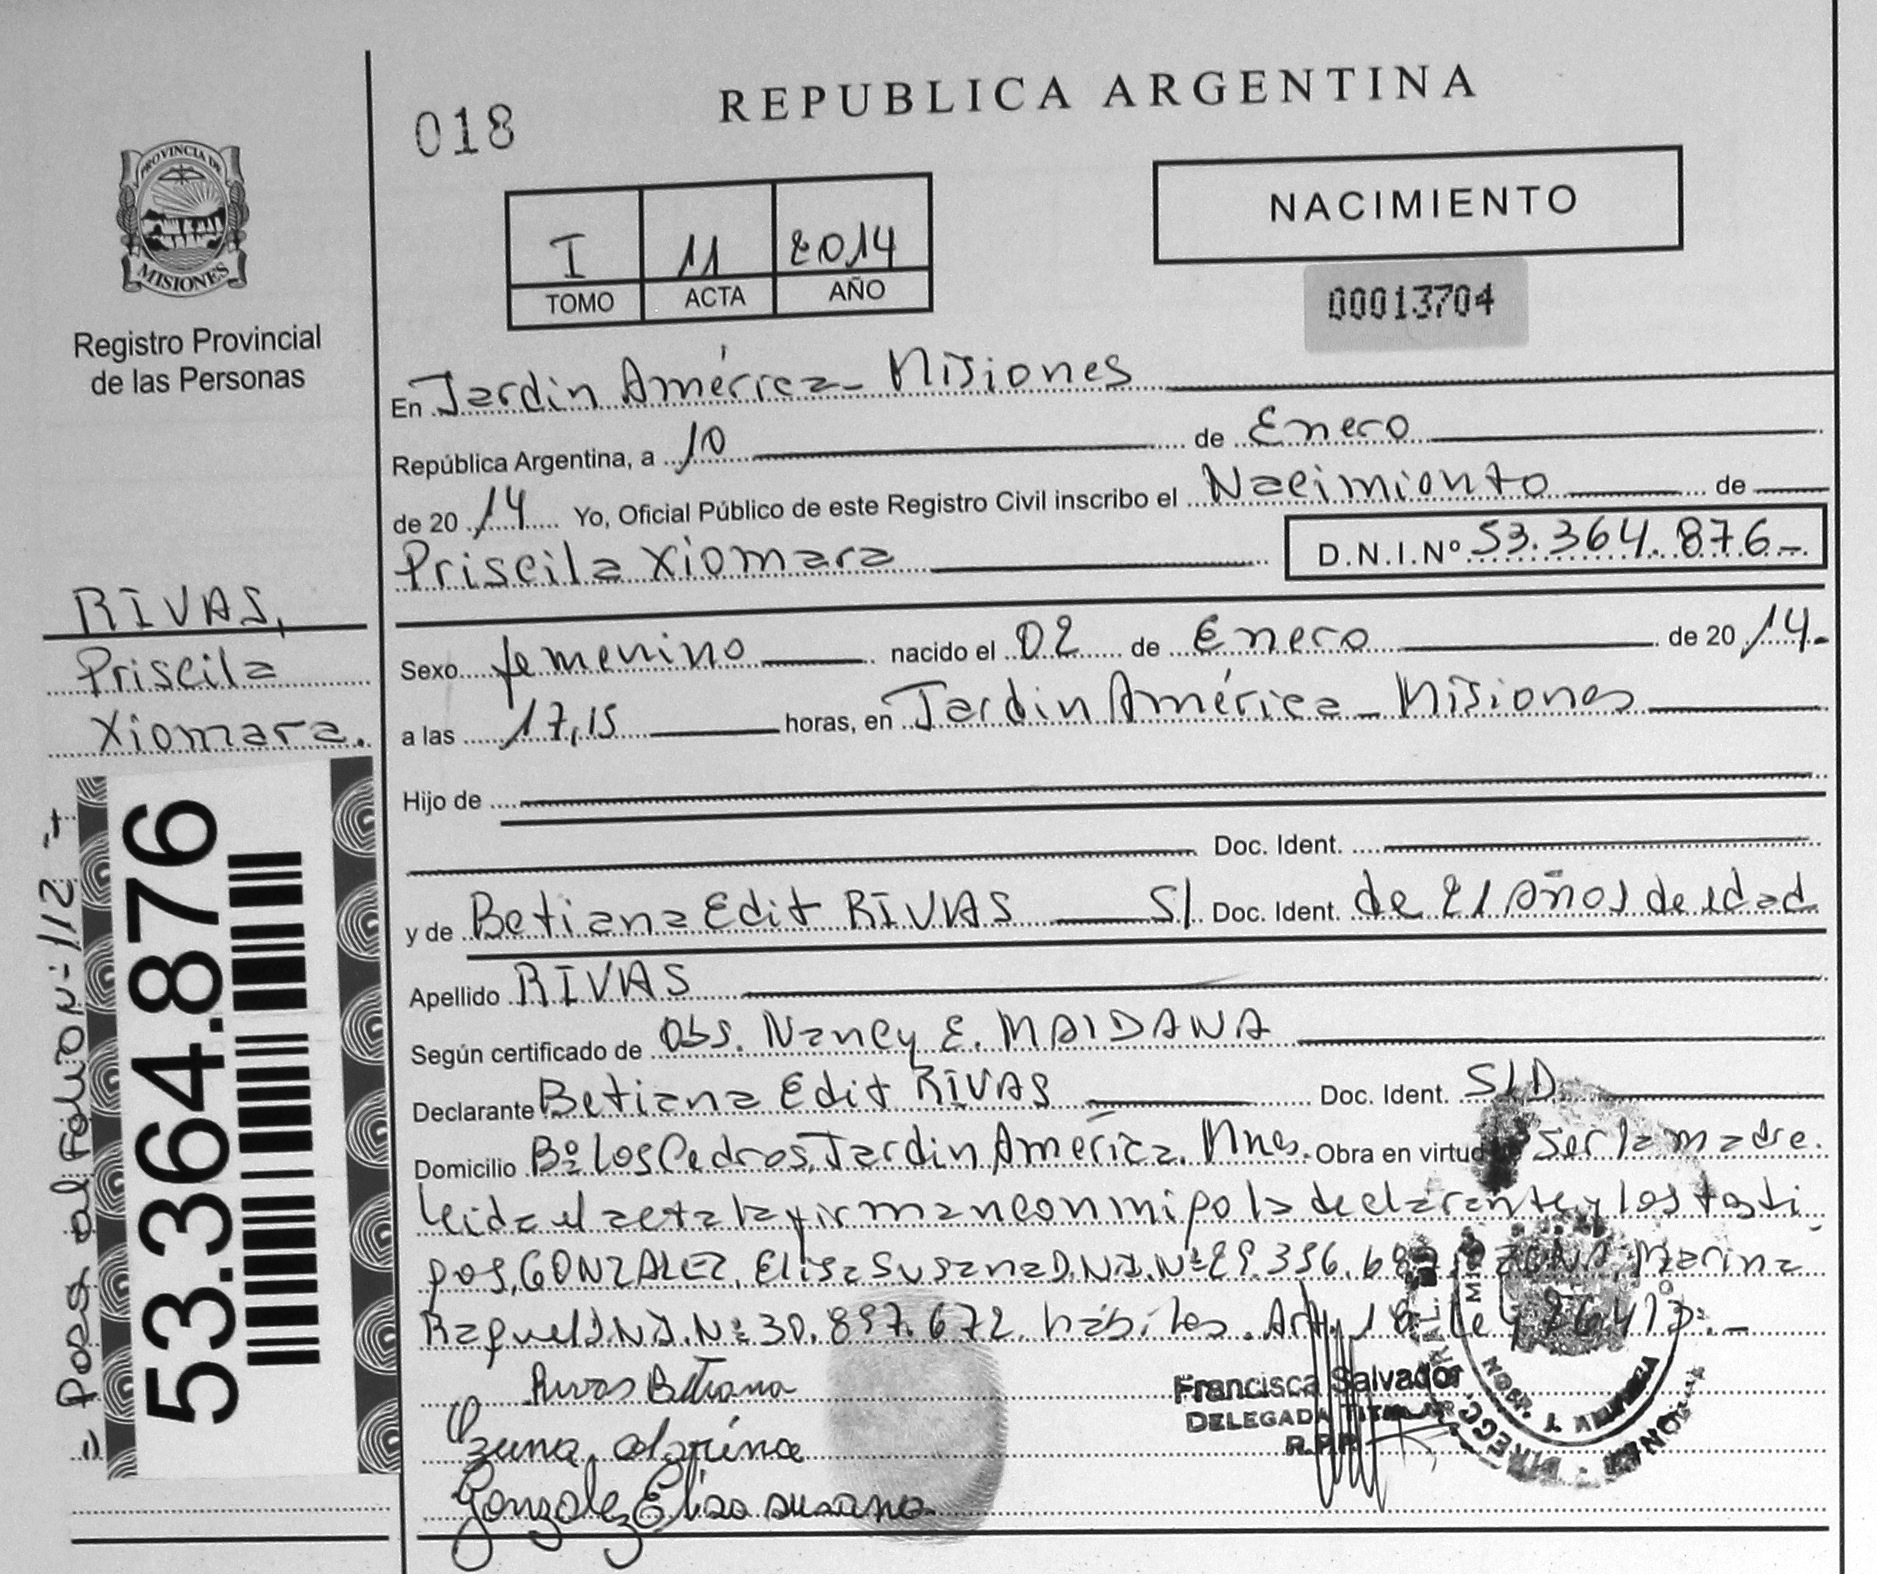 REPUBLICA ARGENTINA
018
PROVINCIA DE
MISIONES
Registro Provincial
de las Personas
I 11 2014
TOMO ACTA AÑO
NACIMIENTO
00013704
En Jardin América - Misiones
República Argentina, a 10 de Enero
de 20 14 Yo, Oficial Público de este Registro Civil inscribo el Nacimiento de
Priscila Xiomara D.N.I.Nº 53.364.876-
RIVAS,
Priscila
Xiomara.
Sexo femenino nacido el 02 de Enero de 20 14.
a las 17,15 horas, en Jardin América - Misiones
Hijo de
Doc. Ident.
y de Betiana Edit RIVAS S/. Doc. Ident. de 21 Años de edad
Apellido RIVAS
Según certificado de Obs. Nancy E. MAIDANA
Declarante Betiana Edit RIVAS Doc. Ident. S/D
Domicilio Bº Los Cedros, Jardin América. Mnes. Obra en virtud Ser la madre.
Leida el acta la firman conmigo la declarante y los testi
gos, GONZALEZ, Elisa Susana D.N.I.Nº 29.356. Marina
Raquel D.N.I.Nº 30.897.672 hábiles. Art. 18 Ley 26413.-
Rivas Betiana
Marina
Gonzalez Elisa Susana
Francisca Salvador
DELEGADA TITULAR
R.P.P.
53.364.876
Pasa al Folio Nº 112